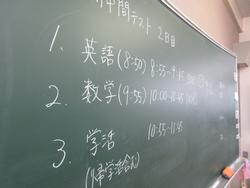 中間テスト 2日目
1. 英語(8:50) 8:55~9:
2. 数学(9:55) 10:00~10:45
3. 学活 10:55~11:45
(帰学活含む)